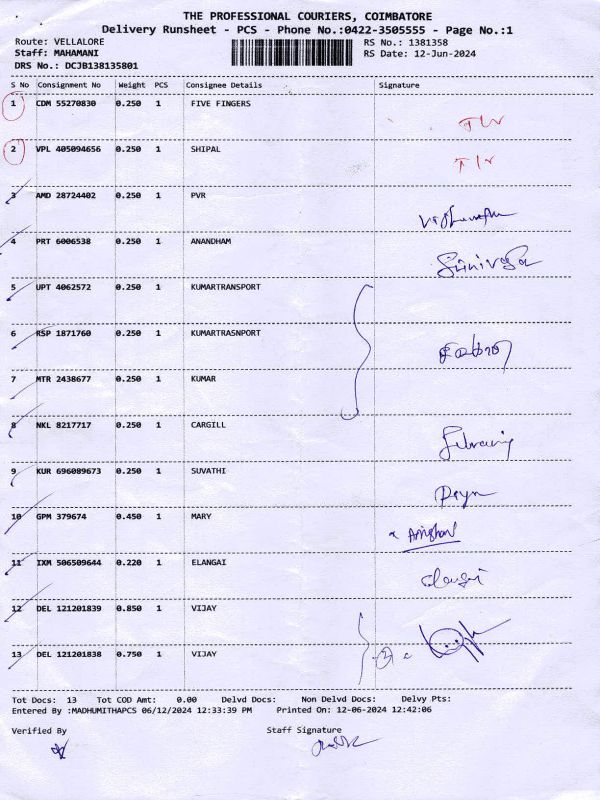 THE PROFESSIONAL COURIERS, COIMBATORE
Delivery Runsheet - PCS - Phone No.:0422-3505555 - Page No.:1
Route: VELLALORE RS No.: 1381358
Staff: MAHAMANI RS Date: 12-Jun-2024
DRS No.: DCJB138135801
S No Consignment No Weight PCS Consignee Details Signature
1 CDM 55270830 0.250 1 FIVE FINGERS
2 VPL 405094656 0.250 1 SHIPAL
3 AMD 28724402 0.250 1 PVR
4 PRT 6006538 0.250 1 ANANDHAM
5 UPT 4062572 0.250 1 KUMARTRANSPORT
6 RSP 1871760 0.250 1 KUMARTRASNPORT
7 MTR 2438677 0.250 1 KUMAR
8 NKL 8217717 0.250 1 CARGILL
9 KUR 696089673 0.250 1 SUVATHI
10 GPM 379674 0.450 1 MARY
11 IXM 506509644 0.220 1 ELANGAI
12 DEL 121201839 0.850 1 VIJAY
13 DEL 121201838 0.750 1 VIJAY
Tot Docs: 13 Tot COD Amt: 0.00 Delvd Docs: Non Delvd Docs: Delvy Pts:
Entered By :MADHUMITHAPCS 06/12/2024 12:33:39 PM Printed On: 12-06-2024 12:42:06
Verified By Staff Signature